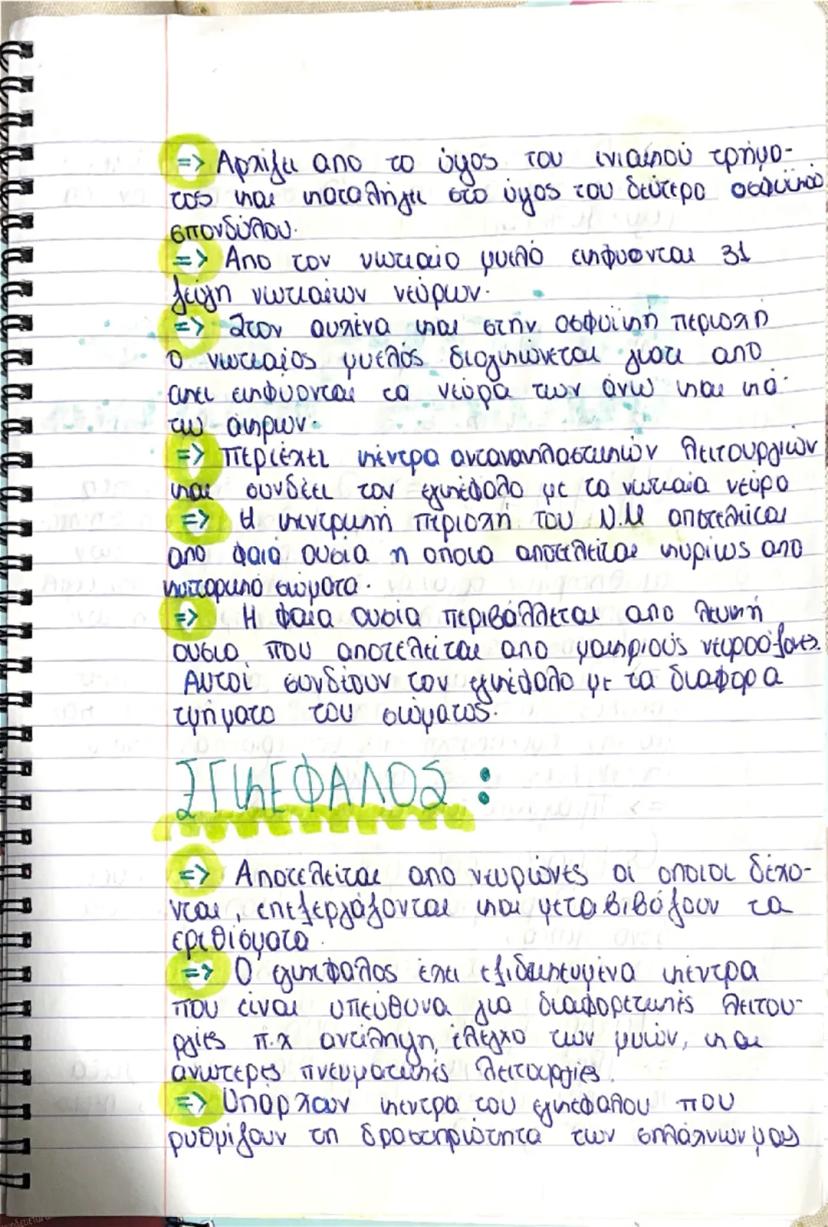 => Αρχίζει απο το ύψος του ινιακού τρήμα-
τος και καταλήγει στο ύψος του δεύτερο οσφυϊκού
σπονδύλου.
=> Απο τον νωτιαίο μυελό εκφυονται 31
ζεύγη νωτιαίων νεύρων.
=> Στον αυχένα και στην οσφυϊκή περιοχή
ο νωτιαίος μυελός διογκώνεται γιατι απο
εκει εκφυονται τα νεύρα των άνω και κά-
τω άκρων.
=> Περιέχει κέντρα αντανακλαστικών λειτουργιών
και συνδέει τον εγκέφαλο με τα νωτιαία νεύρα
=> Η κεντρική περιοχή του Ν.Μ αποτελείται
απο φαιά ουσία η οποία αποτελείται κυρίως απο
κυτταρικά σώματα.
=> Η φαια ουσία περιβάλλεται απο λευκή
ουσια, που αποτελείται απο μακριούς νευροάξονες.
Αυτοί συνδέουν τον εγκέφαλο με τα διαφορα
τμήματα του σώματος.
ΕΓΚΕΦΑΛΟΣ :
=> Αποτελείται απο νευρώνες οι οποίοι δέχο-
νται, επεξεργάζονται και μεταβιβάζουν τα
ερεθίσματα.
=> Ο εγκέφαλος έχει εξιδικευμένα κέντρα
που είναι υπεύθυνα για διαφορετικές λειτου-
ργίες π.χ αντίληψη, έλεγχο των μυών, και
ανώτερες πνευματικές λειτουργίες.
=> Υπάρχουν κεντρα του εγκεφάλου που
ρυθμίζουν τη δραστηριότητα των σπλάχνων μας